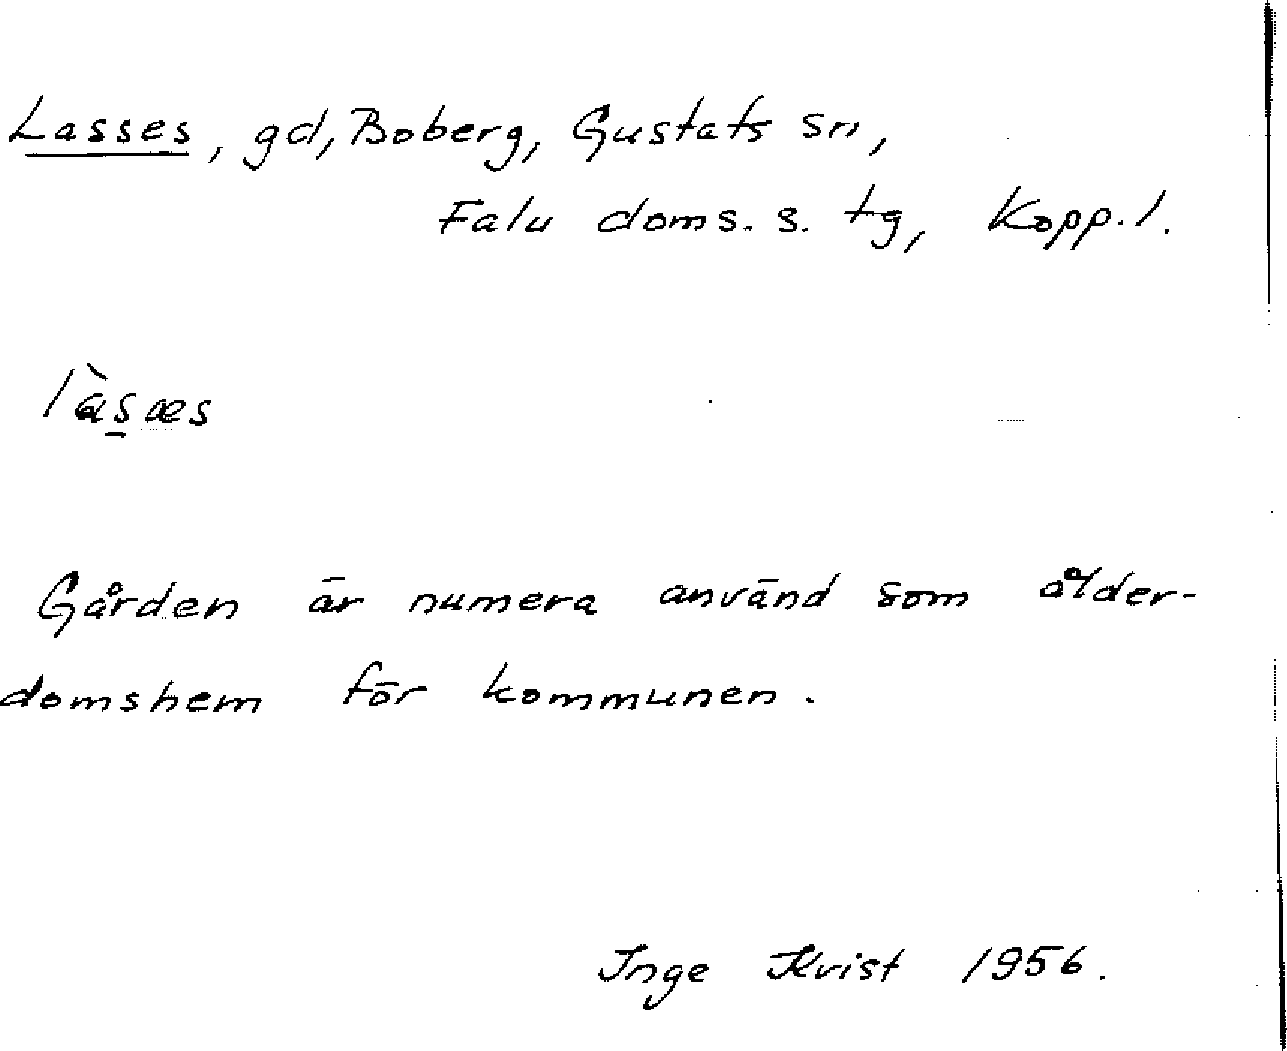 Lasses, gd, Boberg, Gustafs sn,
Falu doms. s. tg, Kopp. l.
là̱sæs
Gården är numera använd som ålder-
domshem för kommunen.
Inge Kvist 1956.